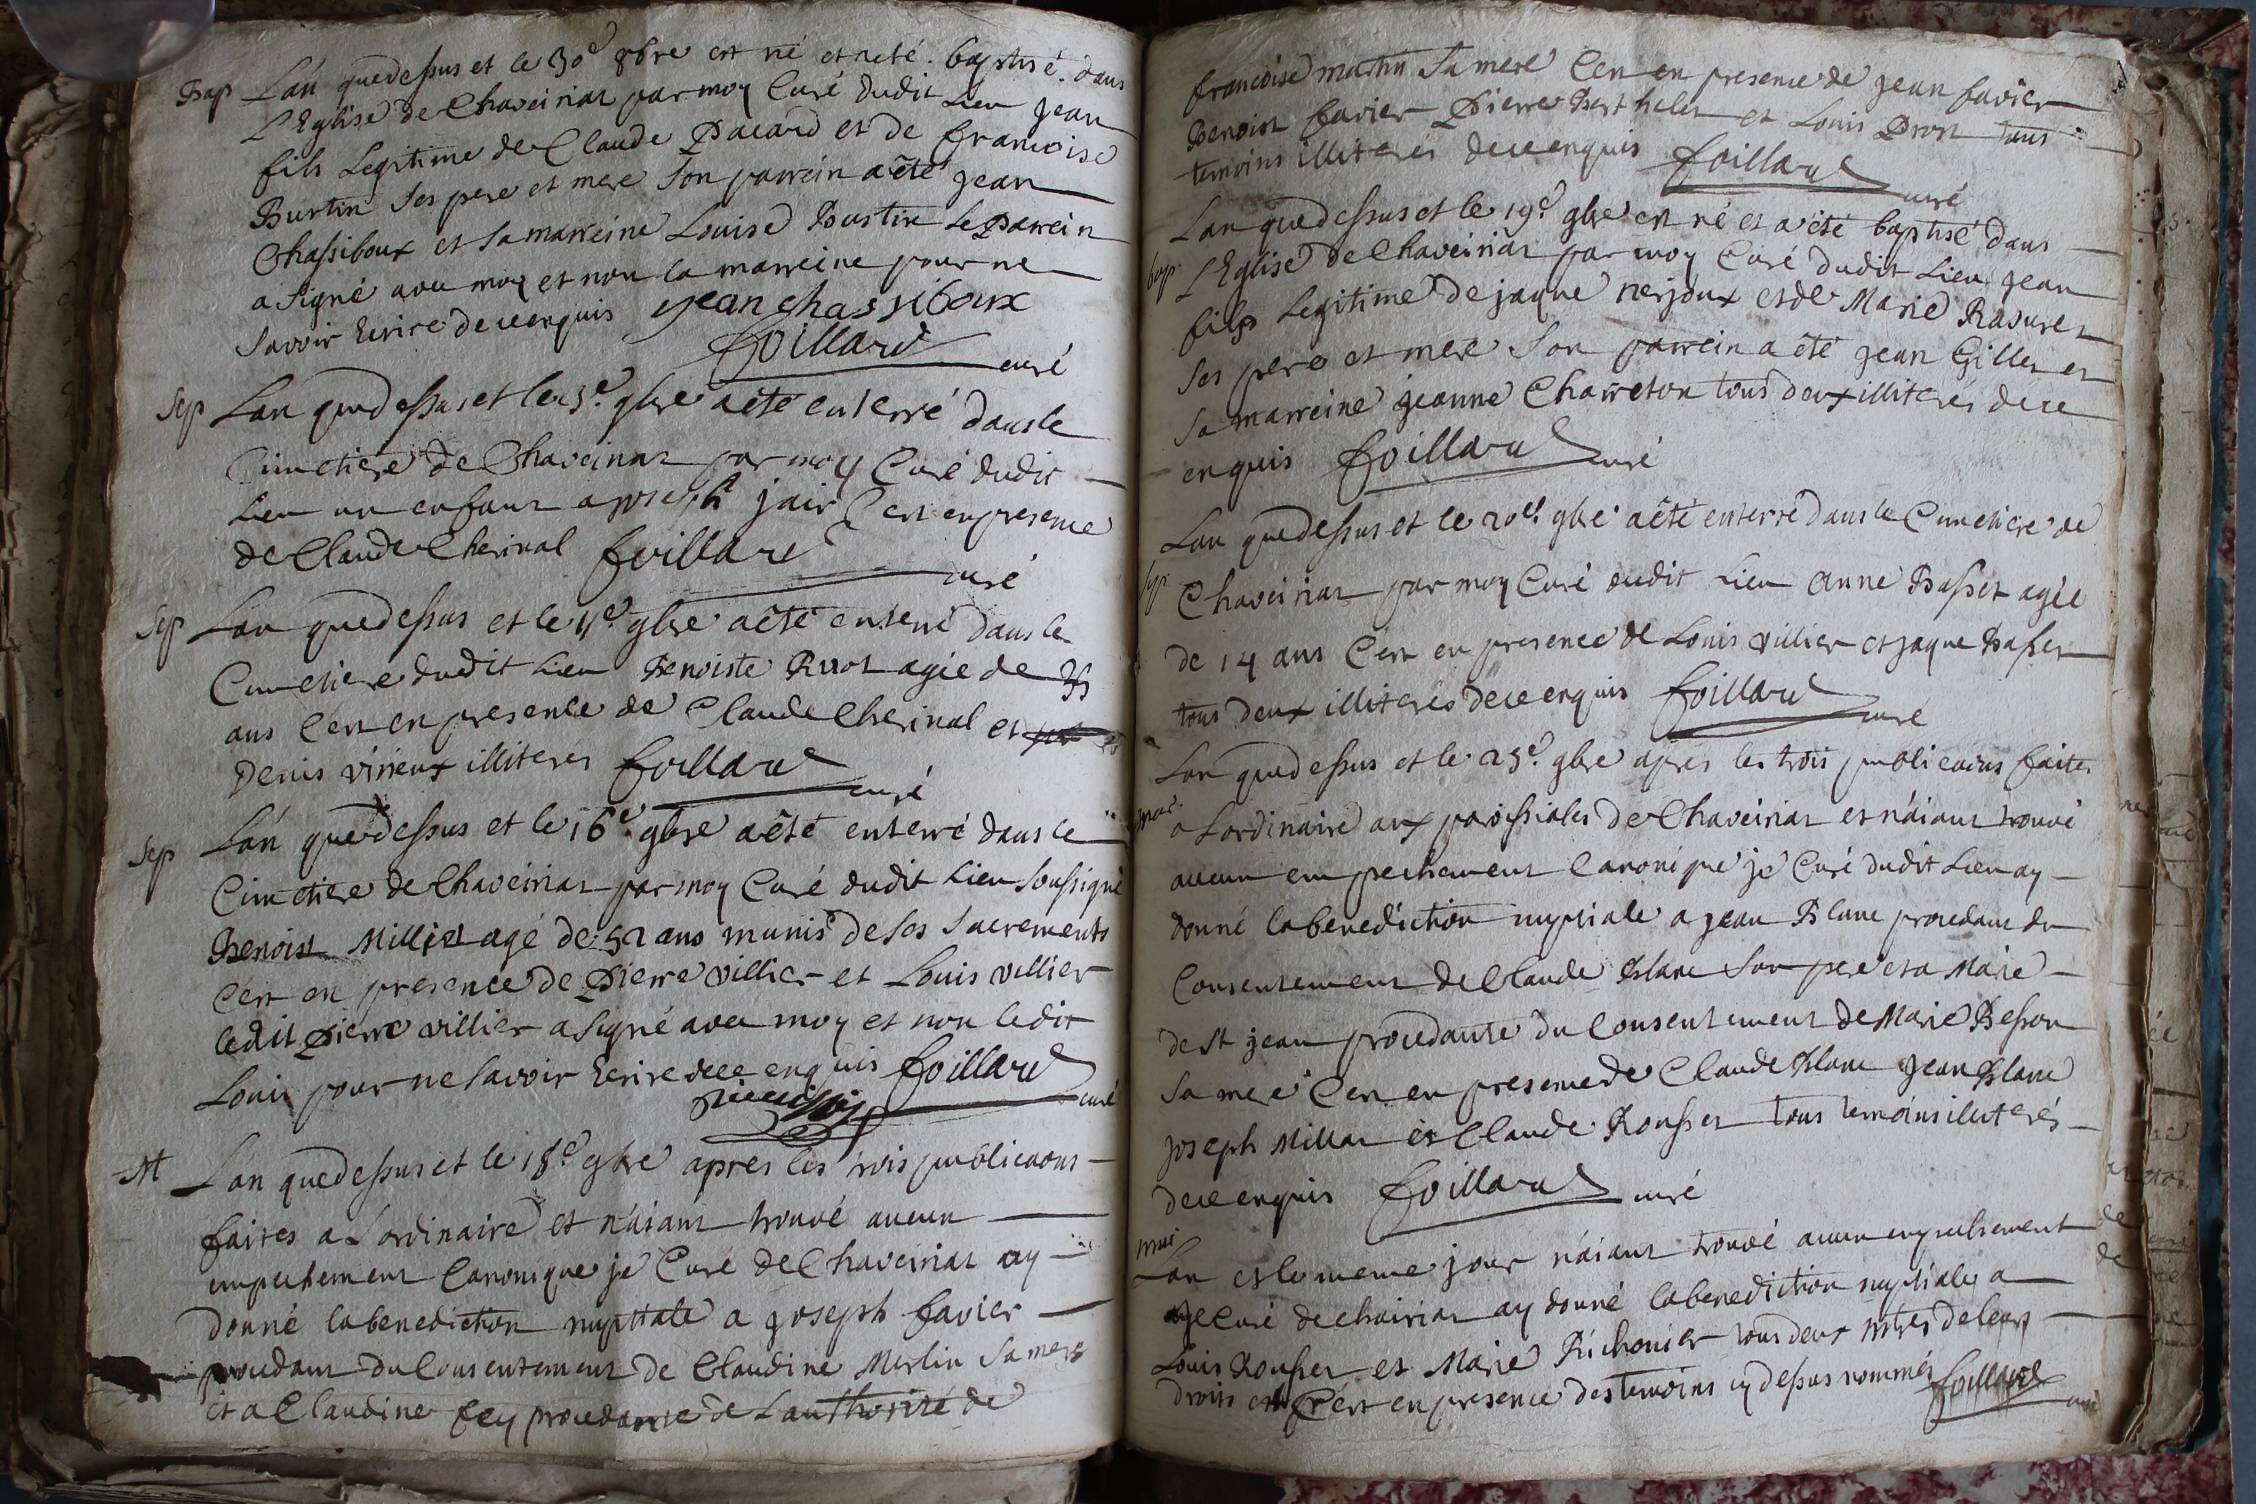 Bap L'an que dessus et le 30e 8bre est né et a eté baptisé dans
L'Eglise de Chaveiriat par moy Curé dudit Lieu jean
fils Legitime de Claude Pacard et de francoise
Burtin ses pere et mere son parrein a êté jean
Chassiboux et sa marreine Louise Burtin Le Parrein
a signé avec moy et non la marreine pour ne
savoir Ecrire de ce enquis jean chassiboux
foillard curé
Sep L'an que dessus et le 3e 9bre a êté enterré dans le
Cimetiere de Chaveiriat par moy Curé dudit
Lieu un enfant a joseph jair C'est en presence
de Claude Cherinal foillard
curé
Sep L'an que dessus et le 4e 9bre a êté enterré dans le
Cimetiere dudit Lieu Benoiste Ruot agée de
ans C'est en presence de Claude Cherinal et
denis virieux illiterés foillard curé
Sep L'an que dessus et le 16e 9bre a êté enterré dans le
Cimetiere de Chaveiriat par moy Curé dudit Lieu soussigné
Benoist Milliet agé de 52 ans munis de ses sacrements
C'est en presence de Pierre villier et Louis villier
ledit Pierre villier a signé avec moy et non ledit
Louis pour ne savoir Ecrire de ce enquis foillard
curé
M L'an que dessus et le 18e 9bre apres les trois publicaons
faites a L'ordinaire et n'aiant trouvé aucun
empechement Canonique je Curé de Chaveiriat ay
donné la benediction nuptiale a joseph favier
procedant du Consentement de Claudine Merlin sa mere
et a Claudine fey procedante de L'authorité de
francoise martin sa mere C'est en presence de jean favier
Benoist favier Pierre Berthelet et Louis Drot tous
temoins illiterés de ce enquis foillard
curé
L'an que dessus et le 19e 9bre est né et a été baptisé dans
bap L'Eglise de Chaveiriat par moy Curé dudit Lieu jean
fils Legitime de jaque nerjoux et de Marie Rasurel
ses pere et mere son parrein a êté jean Gilles et
sa marreine jeanne Charreton tous deux illiterés de ce
enquis foillard curé
L'an que dessus et le 20e 9bre a êté enterré dans le Cimetiere de
sep Chaveiriat par moy Curé dudit Lieu anne Basset agée
de 14 ans C'est en presence de Louis villier et jaque Basset
tous deux illiterés de ce enquis foillard
curé
L'an que dessus et le 25e 9bre apres les trois publicaons faites
mar. a L'ordinaire aux paroissiales de Chaveiriat et n'aiant trouvé
aucun empechement Canonique je Curé dudit Lieu ay
donné la benediction nuptiale a jean Blanc procedant du
Consentement de Claude Blanc son pere et a Marie
de st jean procedante du Consentement de Marie Besson
sa mere C'est en presence de Claude Blanc jean Blanc
joseph Millat et Claude Rousset tous temoins illiterés
de ce enquis foillard curé
mar L'an et le meme jour n'aiant trouvé aucun empechement
je Curé de chaveiriat ay donné la benediction nuptiale a
Louis Rousset et Marie Richonier tous deux mtres de leurs
droits C'est en presence des temoins cy dessus nommés foillard
curé